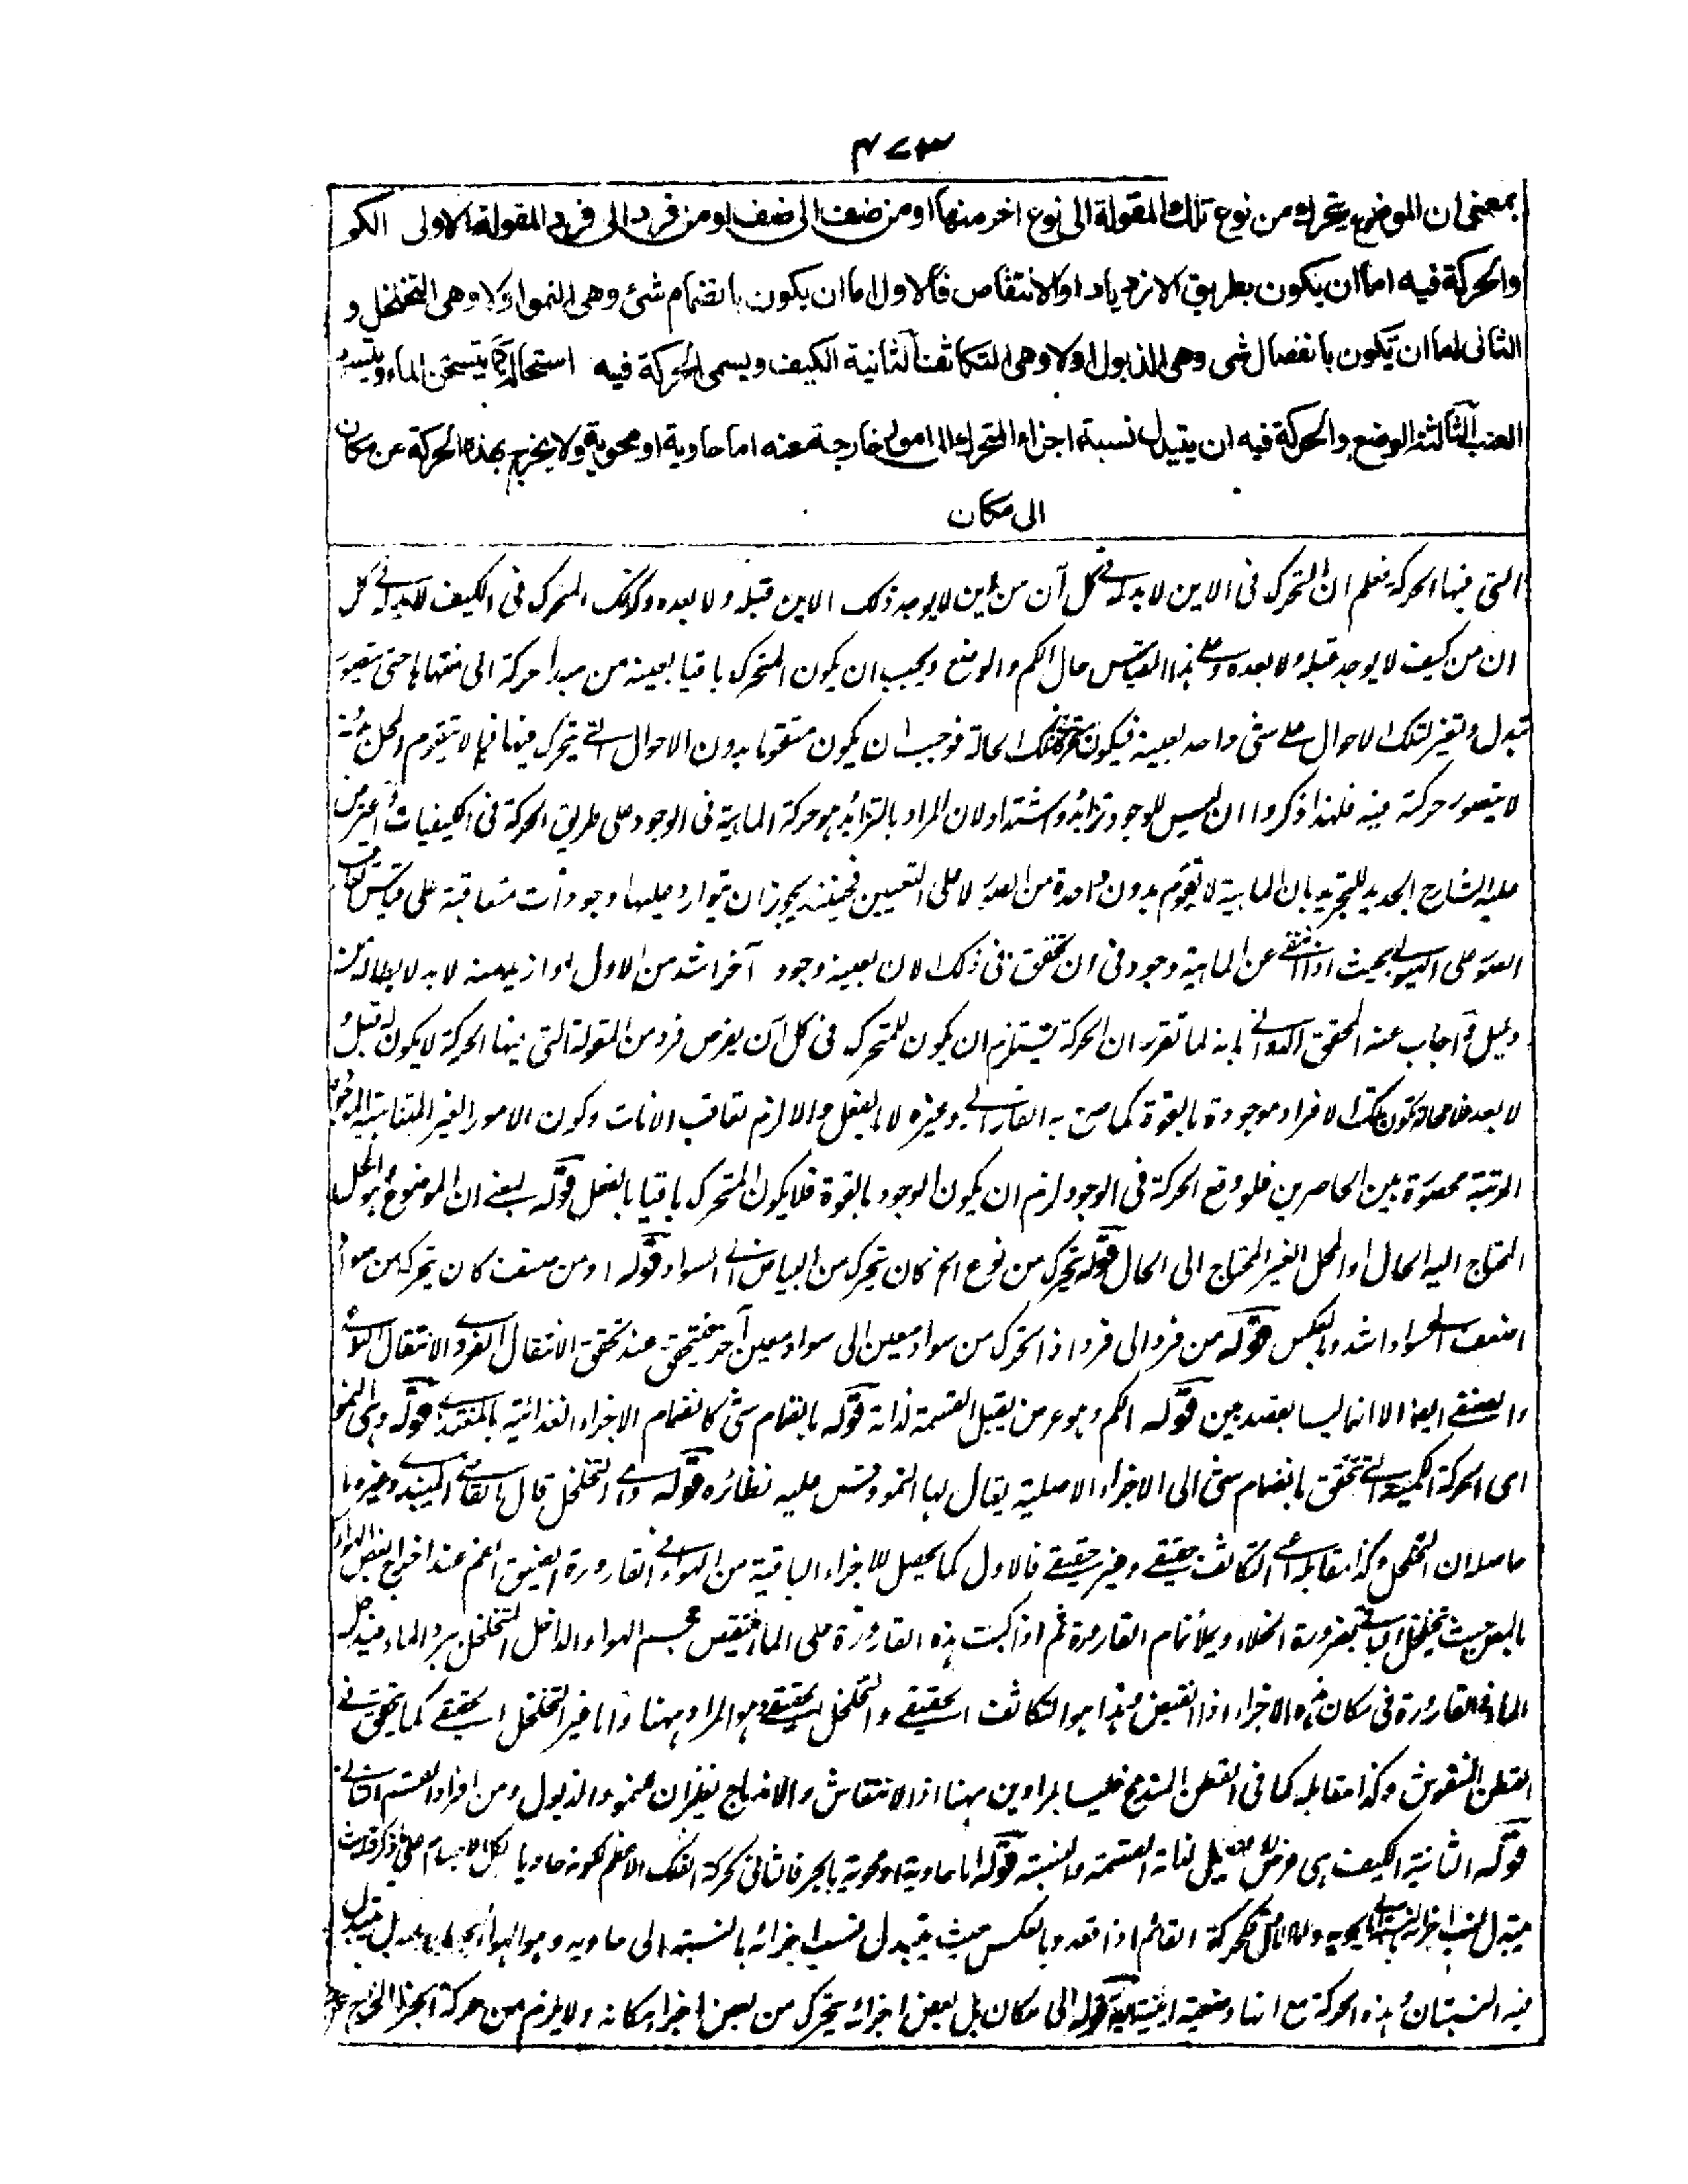 ٤٧٣
بمعنى ان الموضوع يتحرك من نوع تلك المقولة الى نوع اخر منها او من صنف الى صنف او من فرد الى فرد المقولة الاولى الكم
والحركة فيه اما ان يكون بطريق الازدياد او الانتقاص فالاول اما ان يكون بانضمام شئ وهى النمو او لا وهى التخلخل و
الثانى اما ان يكون بانفصال شى وهى الذبول او لا وهى التكاثف الثانية الكيف ويسمى الحركة فيه استحالة كما يتسخن الماء ويتسود
العنب الثالثة الوضع والحركة فيه ان يتبدل نسبة اجزاء المتحرك الى امور خارجة عنه اما حاوية او محوية ولا يخرج بهذه الحركة عن مكان
الى مكان
التى فيها الحركة فعلم ان المتحرك فى الاين لابد له فى كل آن من اين لا يوجد ذلك الاين قبله ولا بعده وكذلك المتحرك فى الكيف لابد له فى كل
ان من كيف لا يوجد قبله ولا بعده وعلى هذا القياس حال الكم والوضع ويجب ان يكون المتحرك باقيا بعينه من مبدا حركة الى منتهاها حتى يتصور
تبدل وتغير لتلك الاحوال على شى واحد بعينه فيكون تلك الحالة فوجب ان يكون متقوما بدون الاحوال التى يتحرك فيها فما لا يتقوم المحل بدونه
لا يتصور حركة فيه فلهذا ذكروا ان ليس للوجود تزائد واشتداد لان المراد بالتزائد هو حركة الماهية فى الوجود على طريق الحركة فى الكيفيات واعترض
عليه الشارح الجديد للتجريد بان الماهية لا تقوم بدون واحدة من الصور لا على التعيين فحينئذ يجوز ان يتوارد عليها وجودات متعاقبة على قياس تعاقب
الصور على الهيولى بحيث اذا انتفى عن الماهية وجود فى ان تحقق فى ذلك الان بعينه وجود آخر اشد من الاول او ازيد منه لابد لابطاله من
دليل واجاب عنه المحقق الدوانى بانه لما تقرر ان الحركة يستلزم ان يكون للمتحرك فى كل آن يفرض فرد من المقولة التى فيها الحركة لا يكون له قبل و
لا بعد فلا محالة تكون تلك الافراد موجودة بالقوة كما صرح به الفارابى وغيره لا بالفعل والا لزم تعاقب الانات وكون الامور الغير المتناهية الموجودة
المرتبة محصورة بين الحاصرين فلو وقع الحركة فى الوجود لزم ان يكون الوجود بالقوة فلا يكون المتحرك باقيا بالفعل قوله يعنى ان الموضوع وهو المحل
المحتاج اليه الحال او المحل الغير المحتاج الى الحال قوله يتحرك من نوع الخ كان يتحرك من البياض الى السواد قوله او من صنف كان يتحرك من سواد
اضعف الى سواد اشد وبالعكس قوله من فرد الى فرد اذا تحرك من سواد معين الى سواد معين آخر فيتحقق عند تحقق الانتقال الفردى الانتقال النوعى
والصنفى ايضا الا انهما ليسا بقصديين قوله الكم وهو عرض يقبل القسمة لذاته قوله بانضمام شئ كانضمام الاجزاء الغذائية بالمغتذى قوله وهى النمو
اى الحركة الكمية التى تتحقق بانضمام شئ الى الاجزاء الاصلية يقال لها النمو وقس عليه نظائره قوله وهى التخلخل قال وغيره ما
حاصله ان التخلخل وكذا مقابله اى التكاثف حقيقى وغير حقيقى فالاول كما يحصل للاجزاء الباقية من الهواء فى القارورة الضيق الفم عند اخراج بعض الهواء
بالمص حيث يتخلخل الباقى بضرورة الخلاء ويملأ تمام القارورة ثم اذا كبت هذه القارورة على الماء فينقص حجم الهواء الداخل المتخلخل ببرد الماء فيدخل
الماء فى القارورة فى مكان هذه الاجزاء اذا انقبض وهذا هو التكاثف الحقيقى والتخلخل الحقيقى وهو المراد ههنا واما غير التخلخل الحقيقى كما يتحقق فى
القطن المنفوش وكذا مقابله كما فى القطن المندمج فليسا بمرادين ههنا اذ الانتقاش والاندماج نظيران للنمو والذبول ومن افراد القسم الثانى
قوله الثانية الكيف هى عرض لا يقبل لذاته القسمة والنسبة قوله اما حاوية او محوية بالجر فالثانى كحركة الفلك الاعظم لكونه حاويا لكل الاجسام
يتبدل نسب اجزائه الى محويه والاول كحركة القائم اذا قعد وبالعكس حيث يتبدل نسب اجزائه بالنسبة الى حاويه وهو الهواء
فيه النسبتان وهذه الحركة مع انها وضعية اينية ايضا قوله الى مكان بل بعض اجزائه يتحرك من بعض اجزاء مكانه ولا يلزم من حركة الجزء